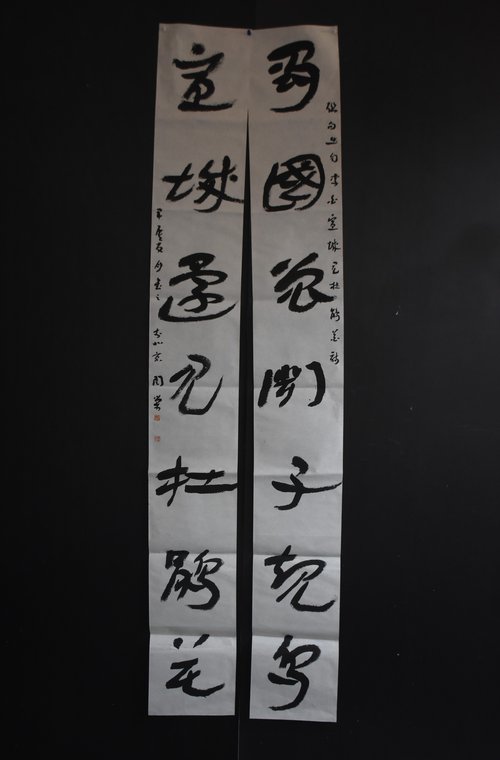 蜀國曾聞子規鳥
李白宣城見杜鵑花詩
宣城還見杜鵑花
月書之於北京